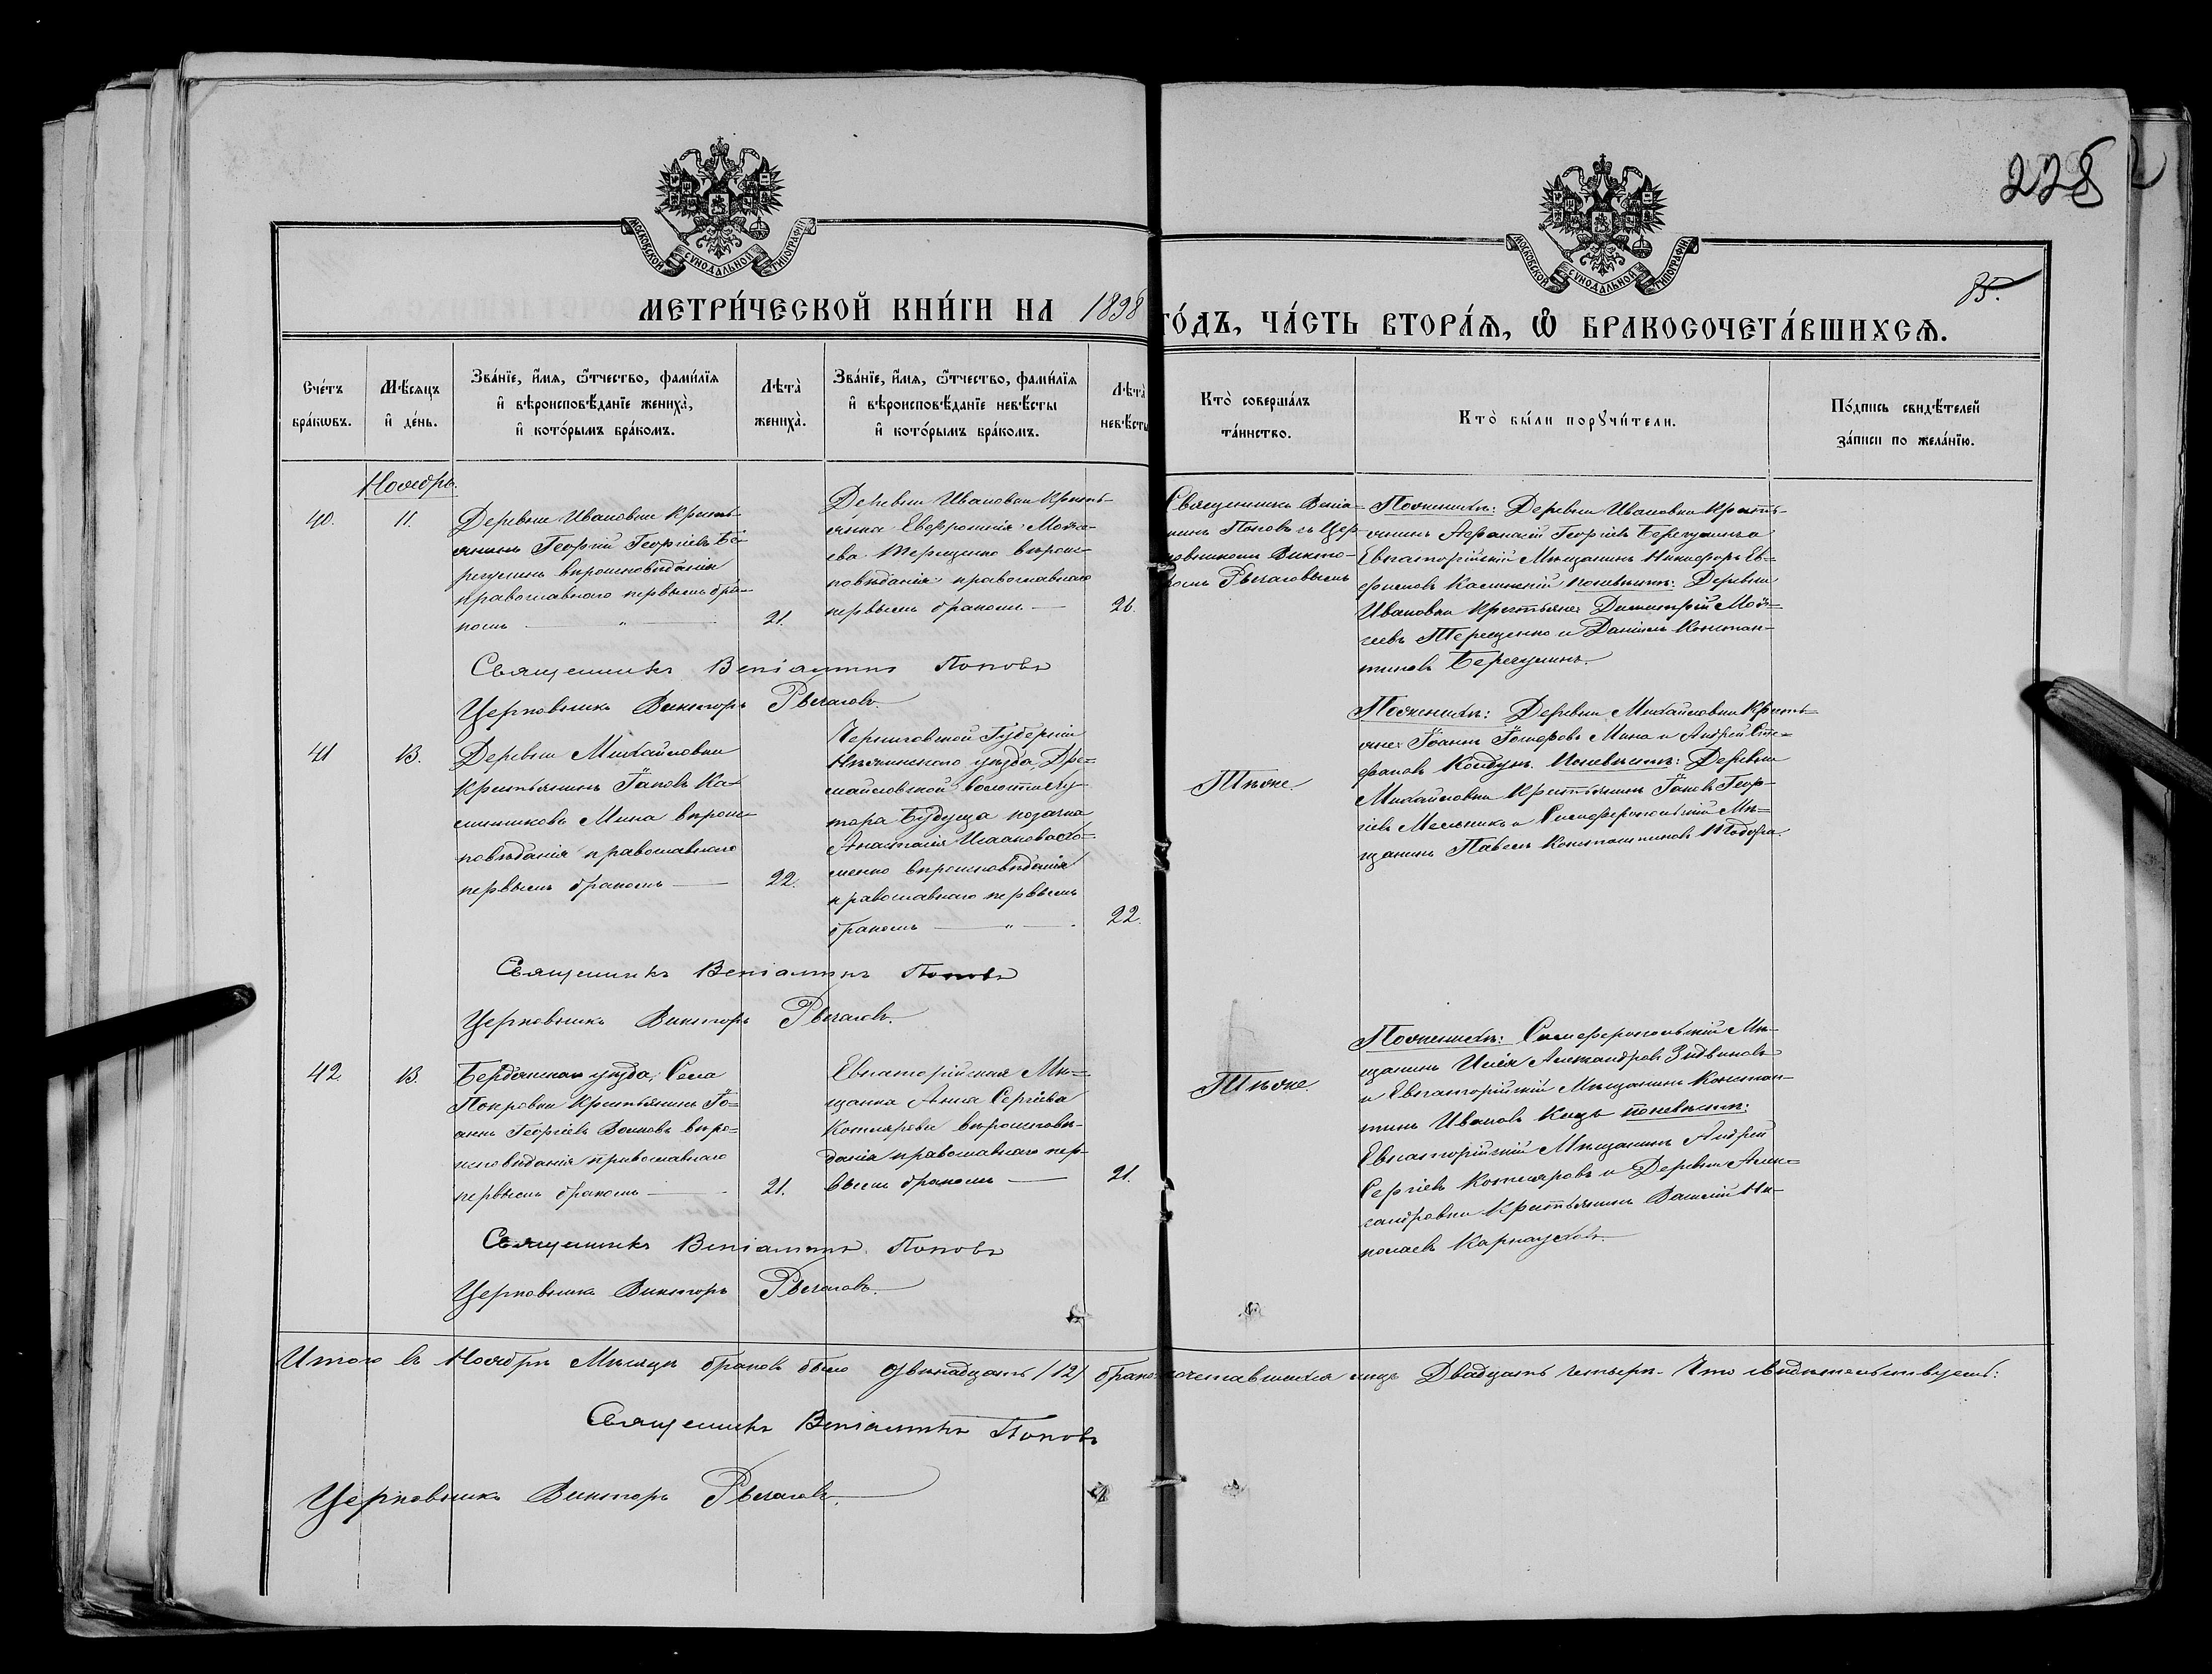 228
85.
МОСКОВСКОЙ СѴНОДАЛЬНОЙ ТИПОГРАФІИ
МОСКОВСКОЙ СѴНОДАЛЬНОЙ ТИПОГРАФІИ
МЕТРИ́ЧЕСКОЙ КНИ́ГИ НА 1898 ГО́ДЪ, ЧА́СТЬ ВТОРА́Я, Ѡ БРАКОСОЧЕТА́ВШИХСЯ.
Сче́тъ
бра́кѡвъ.
Мѣ́сяцъ
и҆ де́нь.
Зва́нїе, и҆́мя, ѻ҆́тчество, фами́лїя
и҆ вѣроисповѣ́данїе жениха̀,
и҆ кото́рымъ бра́комъ.
Лѣта̀
жениха̀.
Зва́нїе, и҆́мя, ѻ҆́тчество, фами́лїя
и҆ вѣроисповѣ́данїе невѣ́сты
и҆ кото́рымъ бра́комъ.
Лѣта̀
невѣ́сты
Кто̀ соверша́лъ
та́инство.
Кто̀ бы́ли порꙋчи́тели.
По́дпись свидѣ́телей
за́писи по жела́нїю.
Ноябрь.
40.
11.
Деревни Ивановки Кресть-
янинъ Георгій Георгіевъ Бе-
режинъ вѣроисповѣданія
православнаго первымъ бра-
комъ — " —
21.
Деревни Ивановки Кресть-
янка Евфросинія Моисе-
ева Терещенко вѣроис-
повѣданія православнаго
первымъ бракомъ —
26.
Священникъ Веніа-
минъ Поповъ съ Цер-
ковникомъ Викто-
ромъ Рыгаловымъ
Поженихѣ: Деревни Ивановки Кресть-
янинъ Афанасій Георгіевъ и
Евпаторійскій Мѣщанинъ Никифоръ Ев-
фимовъ Калинскій поневѣстѣ: Деревни
Ивановки Крестьяне Димитрій Мои-
сеевъ Терещенко и Даніилъ Констан-
тиновъ
Священникъ Веніаминъ Поповъ
Церковникъ Викторъ Рыгаловъ.
41
13.
Деревни Михайловки
Крестьянинъ Іаковъ Ка-
линниковъ Мина вѣроис-
повѣданія православнаго
первымъ бракомъ —
22.
Черниговской Губерніи
Нѣжинскаго уѣзда, Дре-
майловской волости ху-
тора Будуща козачка
Анастасія Исаакова Хо-
менко вѣроисповѣданія
православнаго первымъ
бракомъ — " —
22.
Тѣже.
Поженихѣ: Деревни Михайловки Кресть-
яне Іоаннъ Мина и Андрей Сте-
фановъ Колдунъ. Поневѣстѣ: Деревни
Михайловки Крестьянинъ Іаковъ Геор-
гіевъ Мельникъ и Симферопольскій Мѣ-
щанинъ Павелъ Константиновъ
Священникъ Веніаминъ Поповъ
Церковникъ Викторъ Рыгаловъ.
42.
13.
Бердянскаго уѣзда, Села
Покровки Крестьянинъ Іо-
аннъ Георгіевъ Волковъ вѣро-
исповѣданія православнаго
первымъ бракомъ —
21.
Евпаторійская Мѣ-
щанка Анна Сергіева
Котлярова вѣроисповѣ-
данія православнаго пер-
вымъ бракомъ —
21.
Тѣже.
Поженихѣ: Симферопольскій Мѣ-
щанинъ Илія Александровъ
и Евпаторійскій Мѣщанинъ Констан-
тинъ Ивановъ Кацъ поневѣстѣ:
Евпаторійскій Мѣщанинъ Андрей
Сергіевъ Котляровъ и Деревни Алек-
сандровки Крестьянинъ Василій Ни-
колаевъ Карнауховъ.
Священникъ Веніаминъ Поповъ
Церковникъ Викторъ Рыгаловъ.
Итого въ Ноябрѣ Мѣсяцѣ браковъ было двѣнадцать (12) бракосочетавшихся лицъ Двадцать четыре. Что свидѣтельствуетъ:
Священникъ Веніаминъ Поповъ
Церковникъ Викторъ Рыгаловъ.